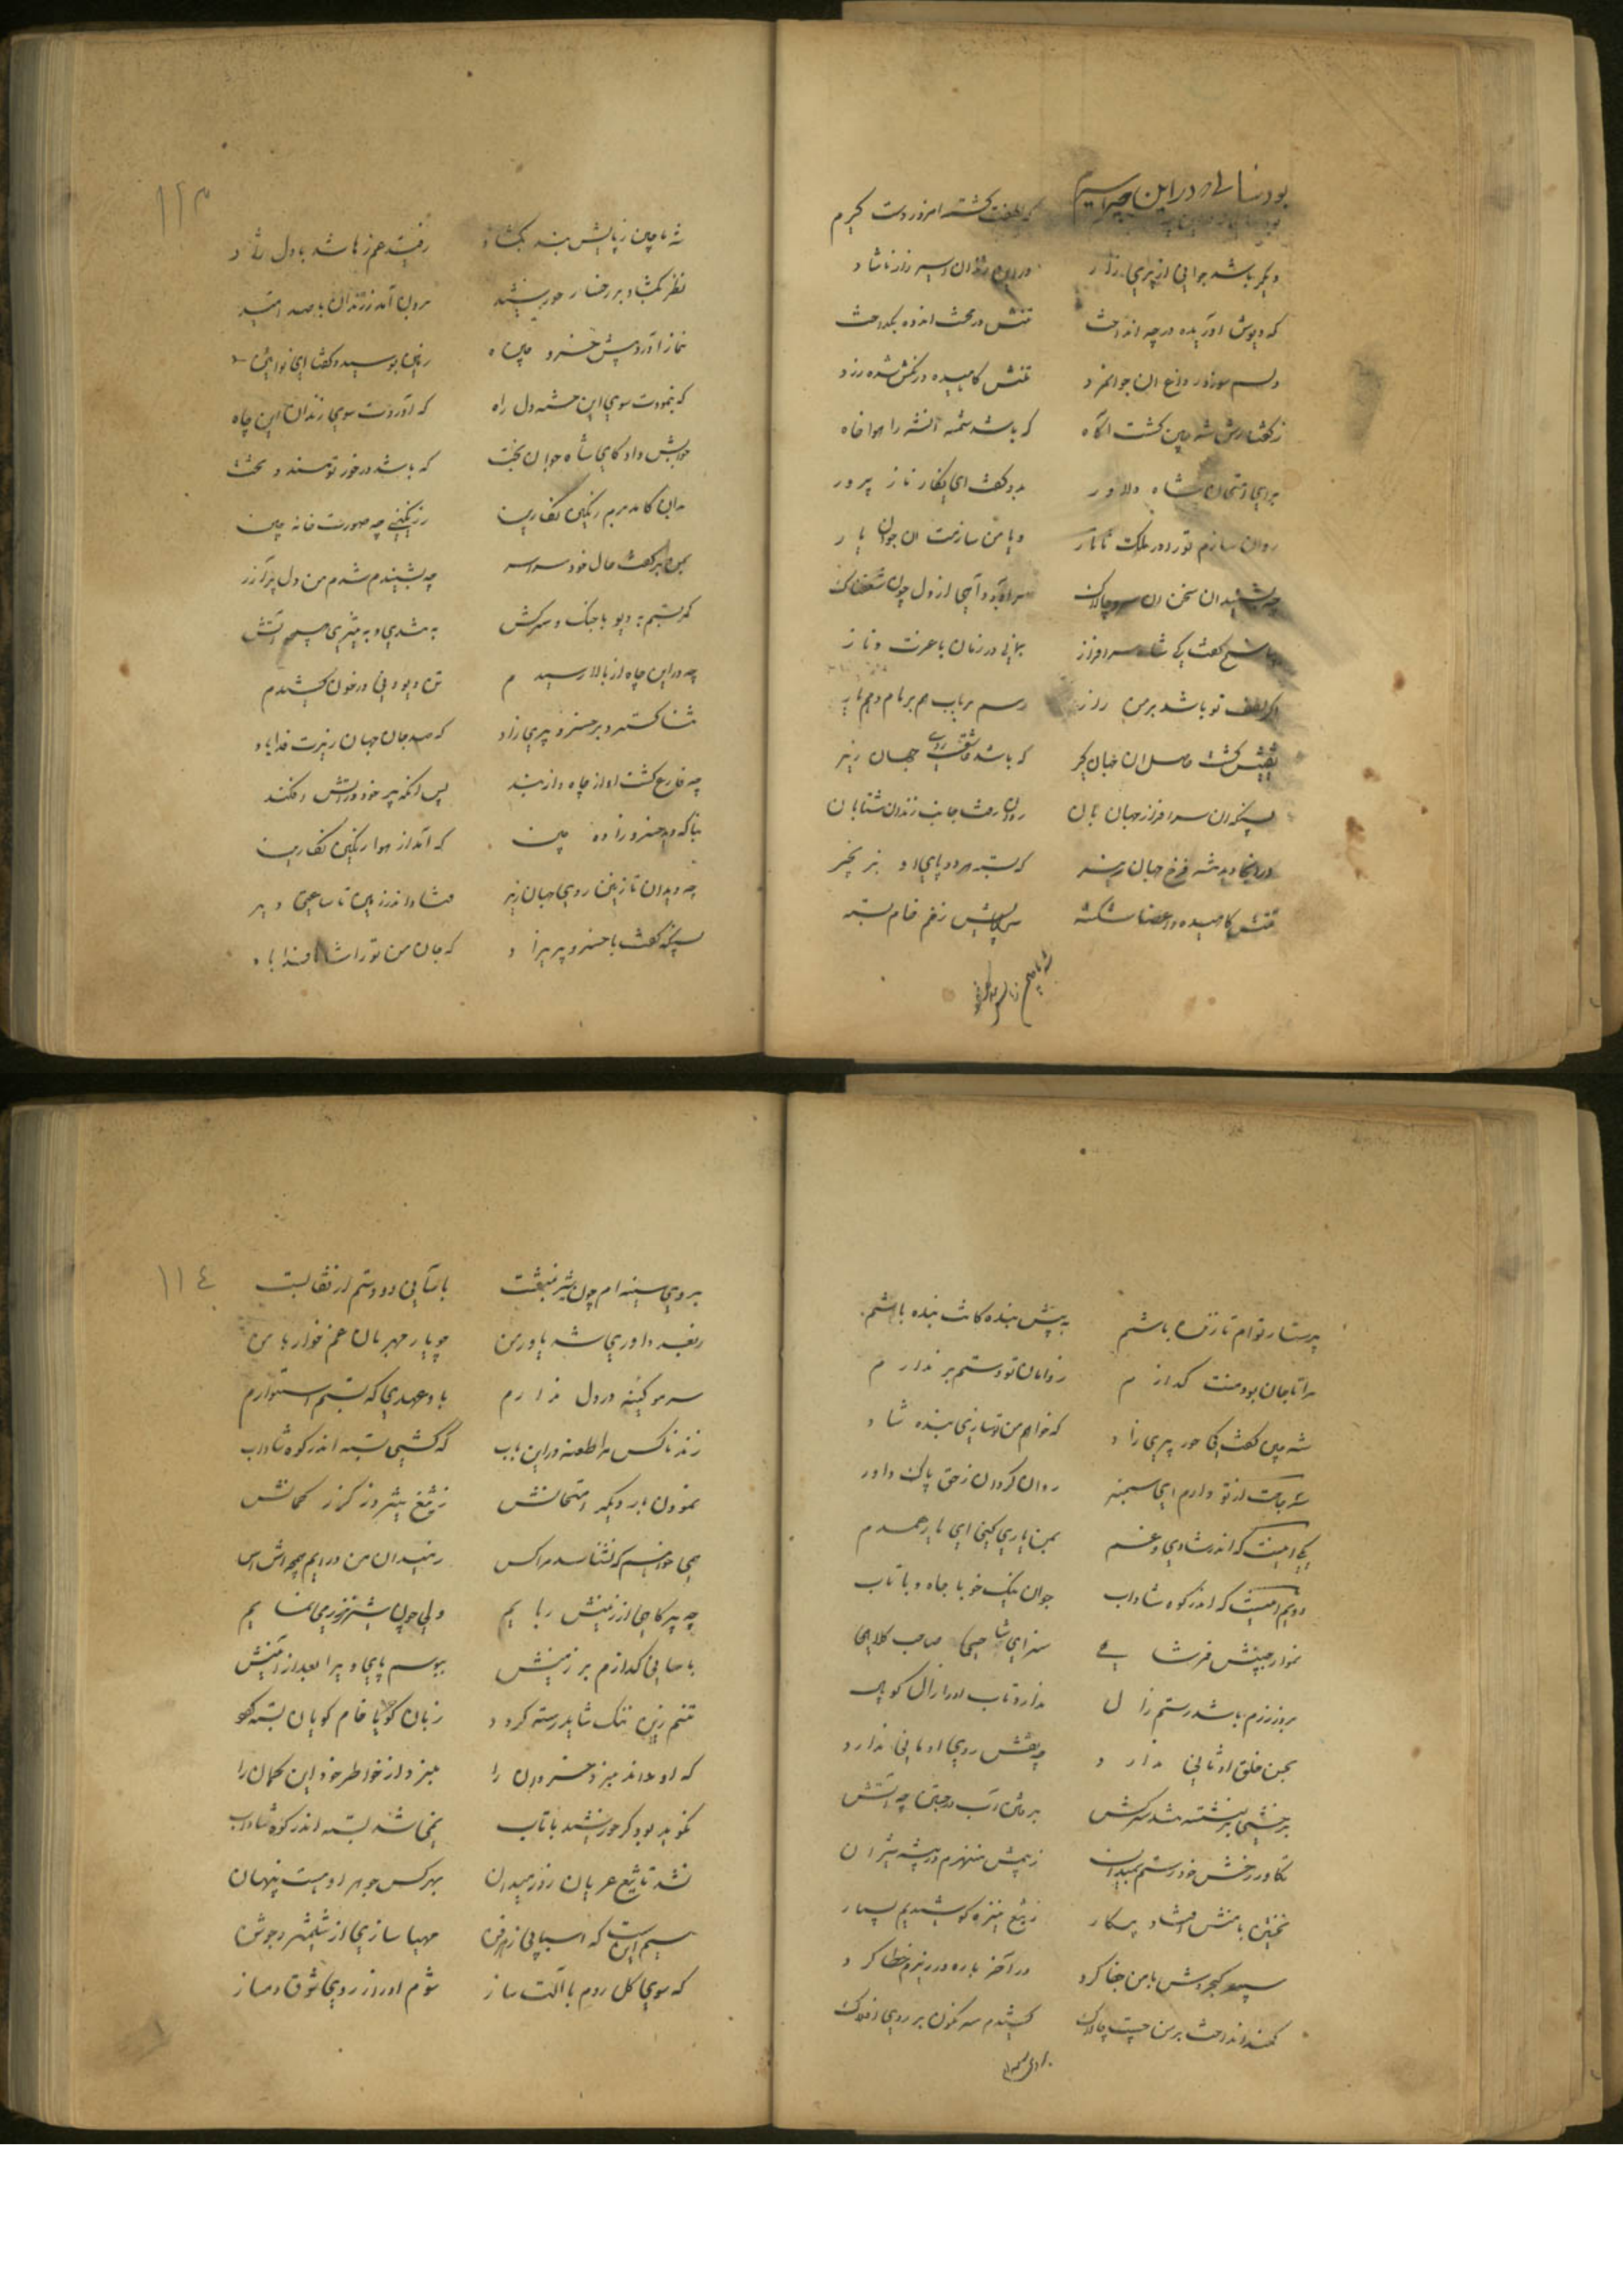 بود سالی در این چه اسیرم که لطفت گشته امروز دستگیرم
دگر باشد جوانی از پری زار در این زندان اسیر زار ناشاد
که دیوش آوریده در چه انداخت تنش در محنت اندوه بگداخت
دلم سوزد ز داغ ان جوانمرد تنش کاهیده رنگش شده زرد
ز گفتارش شه چین گشت آگاه که باشد شمسه آنشه را هواخاه
برای امتحان شاه دلاور بدو گفت ای نگار ناز پرور
روان سازم تو را در ملک تاتار و یا من سازمت ان جوان یار
چه بشنید ان سخن ان سرو چالاک براورد آهی از دل چون شغفناک
بپاسخ گفت کی شاه سرافراز بمانی در زمان با عزت و ناز
اگر لطف تو باشد بر من زار رسم بر باب هم بر مام و هم یار
یقینش گشت حاصل ان جهان گیر که باشد عاشق روی جهان زیر
پس آنگه ان سرافراز جهان بان روان رفت جانب زندان شتابان
در آنجا دید شه فرخ جهان زیر که بسته هر دو پای او بزنجیر
تنش کاهیده و اعضا شکسته سراپایش زخم خام بسته
شه ماچین ز پایش بند بگشاد
۱۱۳
شه ماچین ز پایش بند بگشاد رفیت هم رها شد با دل شاد
نظر بگشاد بر رخسار خورشید برون آمد ز زندان با صد امید
نماز آورد پیش خسرو چین زمین بوسید و گفتا ای نوآیین
که بنمودت سوی این خسته دل راه که آوردت سوی زندان این چاه
جوابش داد کای شاه جوان بخت که باشد در خور تو مسند و تخت
بدان کامد برم رنگین نگارین ز رنگینی چه صورت خانه چین
بمن بر گفت حال خود سراسر چه بشنیدم شدم من دل پر آزر
کمر بستم به دیو با جنگ و سرکش به تندی و به تیزی همچو آتش
چه در این چاه از بالا رسیدم تن دیو دنی در خون کشیدم
ثنا گسترد بر خسرو پری زاد که صد جان جهان زیرت فدا باد
چه فارغ گشت او از چاه و از بند پس آنگه پیر خود در آتش افکند
بناگه دید خسرو زاده چین که آمد از هوا رنگین نگارین
چه دید ان نازنین روی جهان زیر فتاد اندر زمین تا ساعتی دیر
پس آنگه گفت با خسرو پریزاد که جان من تو را شاها فدا باد
پرستار توام تا زنده باشم به پیش بنده کانت بنده باشم
مرا تا جان بود منت گدازم ز دامان تو دستم بر ندارم
شه چین گفت کی حور پری زاد که خواهم من تو سازی بنده شاد
سه حاجت از تو دارم ای سمنبر روان گردان ز حق پاک داور
یکی اینست که اندر شادی و غم بمن یاری کنی ای یار همدم
دویم اینست که اندر کوه شاداب جوان نیک خو با جاه و با تاب
نموار جبینش فر شاهی سزای شاهی صاحب کلاهی
بروز رزم باشد رستم زال ندارد تاب او را زال کوپال
بحسن خلق او ثانی ندارد چه نقش روی او مانی ندارد
برخشی بر نشسته تند سرکش برفتن آب در جستن چه آتش
تکاور رخش خود رستم بمیدان ز پیش منهزم در بیشه شیران
نخستین با منش افتاد پیکار ز تیغ نیزه کوشیدیم بسیار
سپهر کجروش با من جفا کرد در آخر باره در زیرم خطا کرد
کمند انداخت بر من چست چالاک کشیدم سرنگون بر روی افلاک
۱۱٤
بروی سینه ام چون شیر نشست باسانی دو دستم از قفا بست
بغیر داوری شد یاور من چو یار مهربان غم خوار با من
سر مو کینه در دل ندارم باو عهدی که بستم استوارم
زند ناکس مرا طعنه در این باب که گشتی بسته اندر کوه شاداب
نمودن بار دیگر امتحانش ز تیغ تیز و ز گرز کمانش
همی خواهم که نشناسد مرا کس
چه پر کاهی از زمینش ربایم ولی چون شیر نر زوری نمایم
باسانی گذارم بر زمینش ببوسم پای و یرا بعد از اینش
تنم زین ننگ شاید رسته گردد زبان خام گویان بسته گردد
که او داند میز خسروان را
نگوید بود گر خورشید با تاب نمی شد بسته اندر کوه شاداب
نشد تا تیغ عریان روز میدان بهر کس جوهر او هست پنهان
سیم اینست که اسبابی ز هر فن مهیا سازی از شمشیر و جوشن
که سوی کل روم با آلت ساز شوم او را از روی شوق دمساز